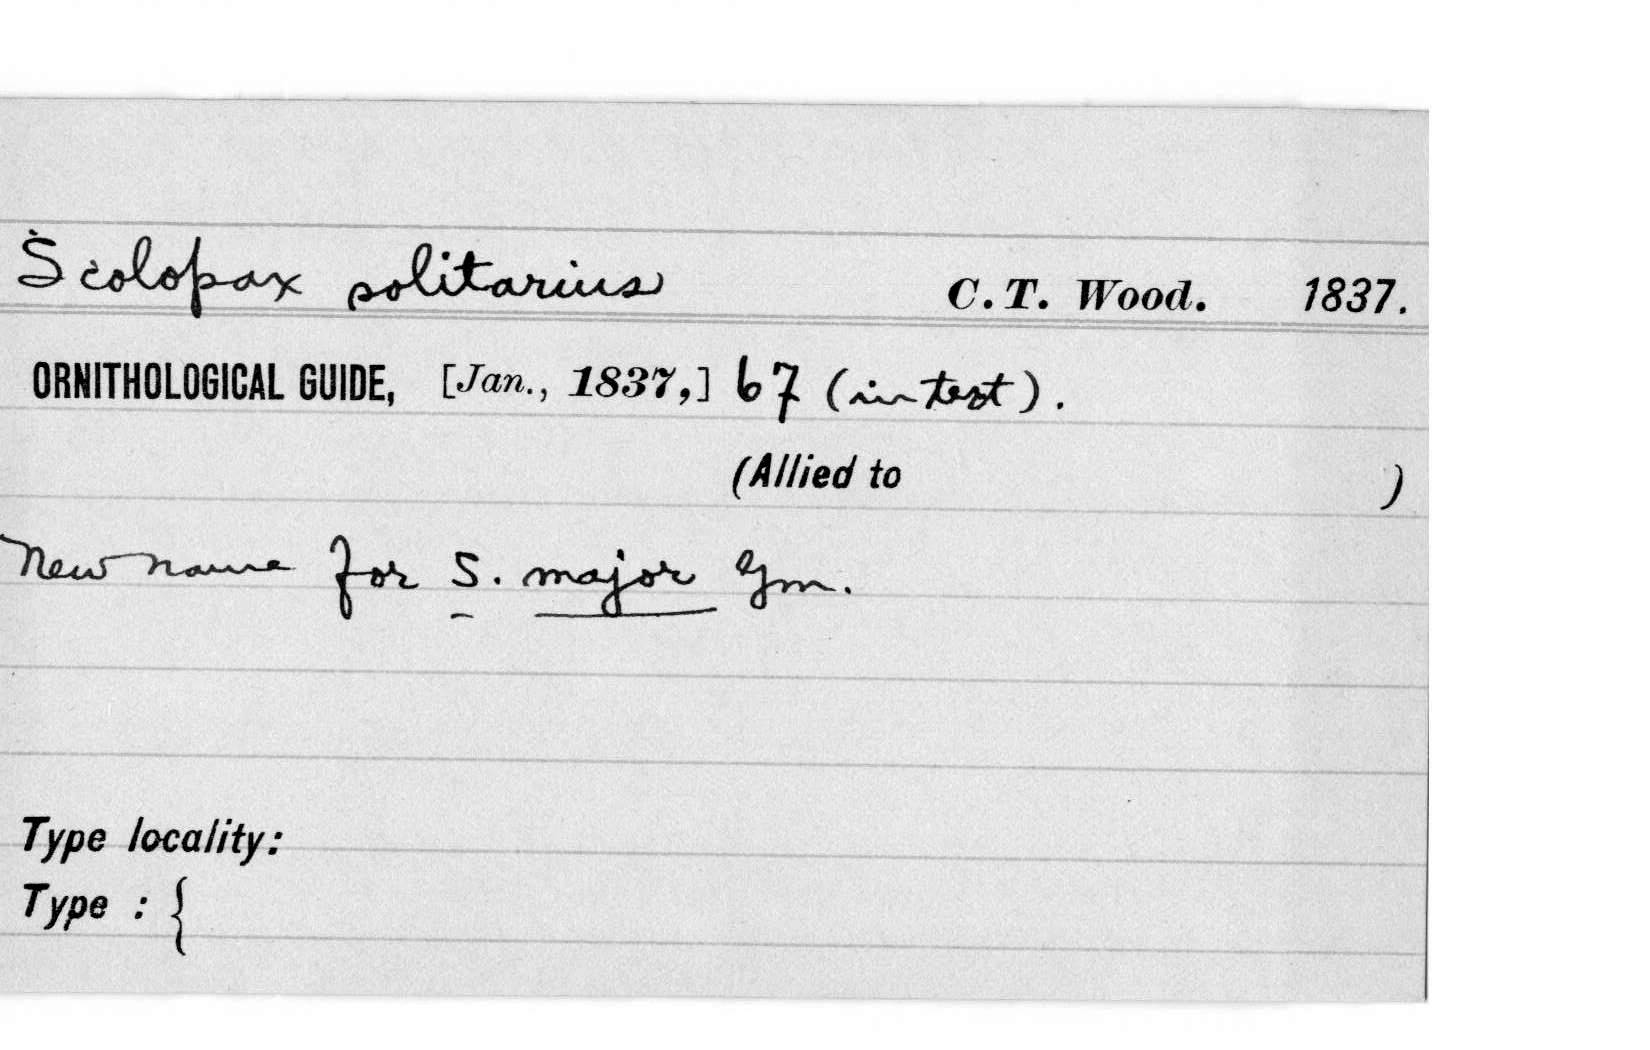 Scolopax solitarius C. T. Wood. 1837.
ORNITHOLOGICAL GUIDE, [Jan., 1837,] 67 (in text).
(Allied to )
New name for S. major Gm.
Type locality:
Type : {